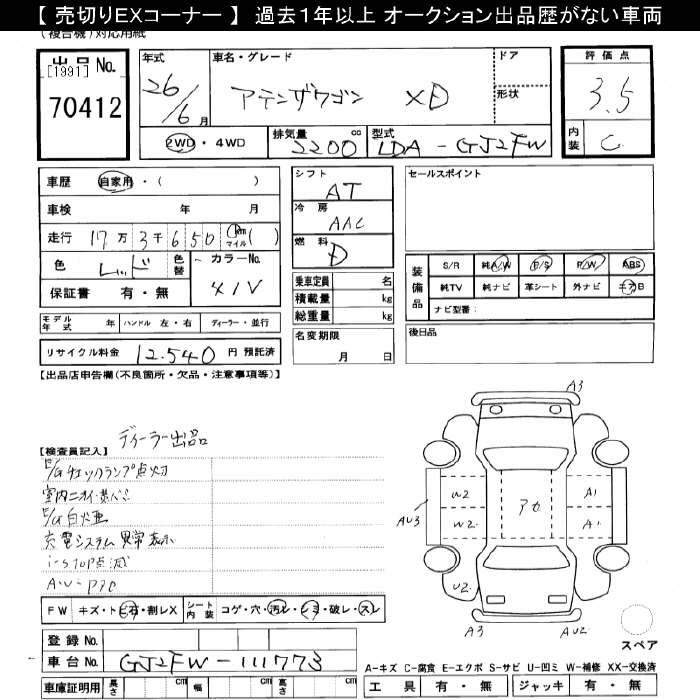 【 売切りEXコーナー 】 過去1年以上 オークション出品歴がない車両
(複合機)対応用紙
出品 No.
[1991]
70412
年式
26/6月
車名・グレード
アテンザワゴン XD
ドア
形状
評価点
3.5
内装
C
2WD・4WD
排気量 cc
2200
型式
LDA-GJ2FW
車歴 自家用・( )
車検 年 月
走行 17万3千650 Km マイル( )
色 レッド 色替
カラーNo.
41V
保証書 有・無
シフト
AT
冷房
AAC
燃料
D
乗車定員 名
積載量 kg
総重量 kg
名変期限
月 日
セールスポイント
装備品
S/R 純A/W P/S P/W ABS
純TV 純ナビ 革シート 外ナビ キズB
ナビ型番:
後日品
モデル年式 年 ハンドル 左・右 ディーラー・並行
リサイクル料金 12.540 円 預託済
【出品店申告欄(不良箇所・欠品・注意事項等)】
ディーラー出品
【検査員記入】
E/Gチェックランプ点灯
室内ニオイ
E/G白煙
充電システム異常表示
i-stop点滅
FW キズ・トビ石・割レX
シート内装 コゲ・穴・汚レ・シミ・破レ・スレ
登録 No.
車台 No. GJ2FW-111773
車庫証明用 長さ cm 幅 cm 高さ cm
A3
AU3
W2
W2
アカ
A1
A1
U2
A3
AU2
スペア
A-キズ C-腐食 E-エクボ S-サビ U-凹ミ W-補修 XX-交換済
工具 有・無 ジャッキ 有・無